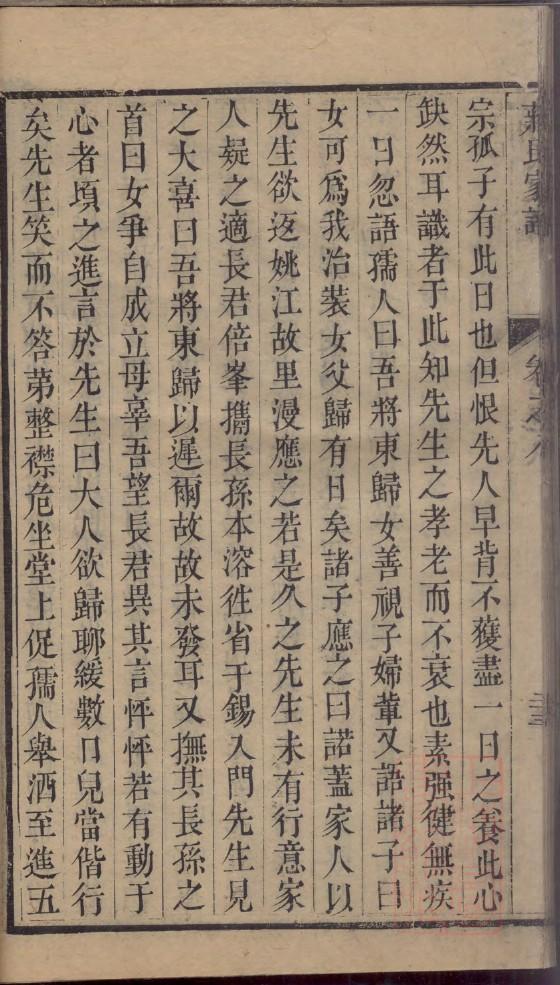 氏家
卷之八
宗孤子有此日也但恨先人早背不獲盡一日之養此心
缺然耳識者于此知先生之孝老而不衰也素强健無疾
一日忽語孺人曰吾將東歸女善視子婦輩又語諸子曰
女可爲我治裝女父歸有日矣諸子應之曰諾蓋家人以
先生欲返姚江故里漫應之若是久之先生未有行意家
人疑之適長君倍峯攜長孫本溶徃省于錫入門先生見
之大喜曰吾將東歸以遲爾故故未發耳又撫其長孫之
首曰女爭自成立毋辜吾望長君異其言怦怦若有動于
心者頃之進言於先生曰大人欲歸聊緩數日兒當偕行
矣先生笑而不答苐整襟危坐堂上促孺人舉酒至進五